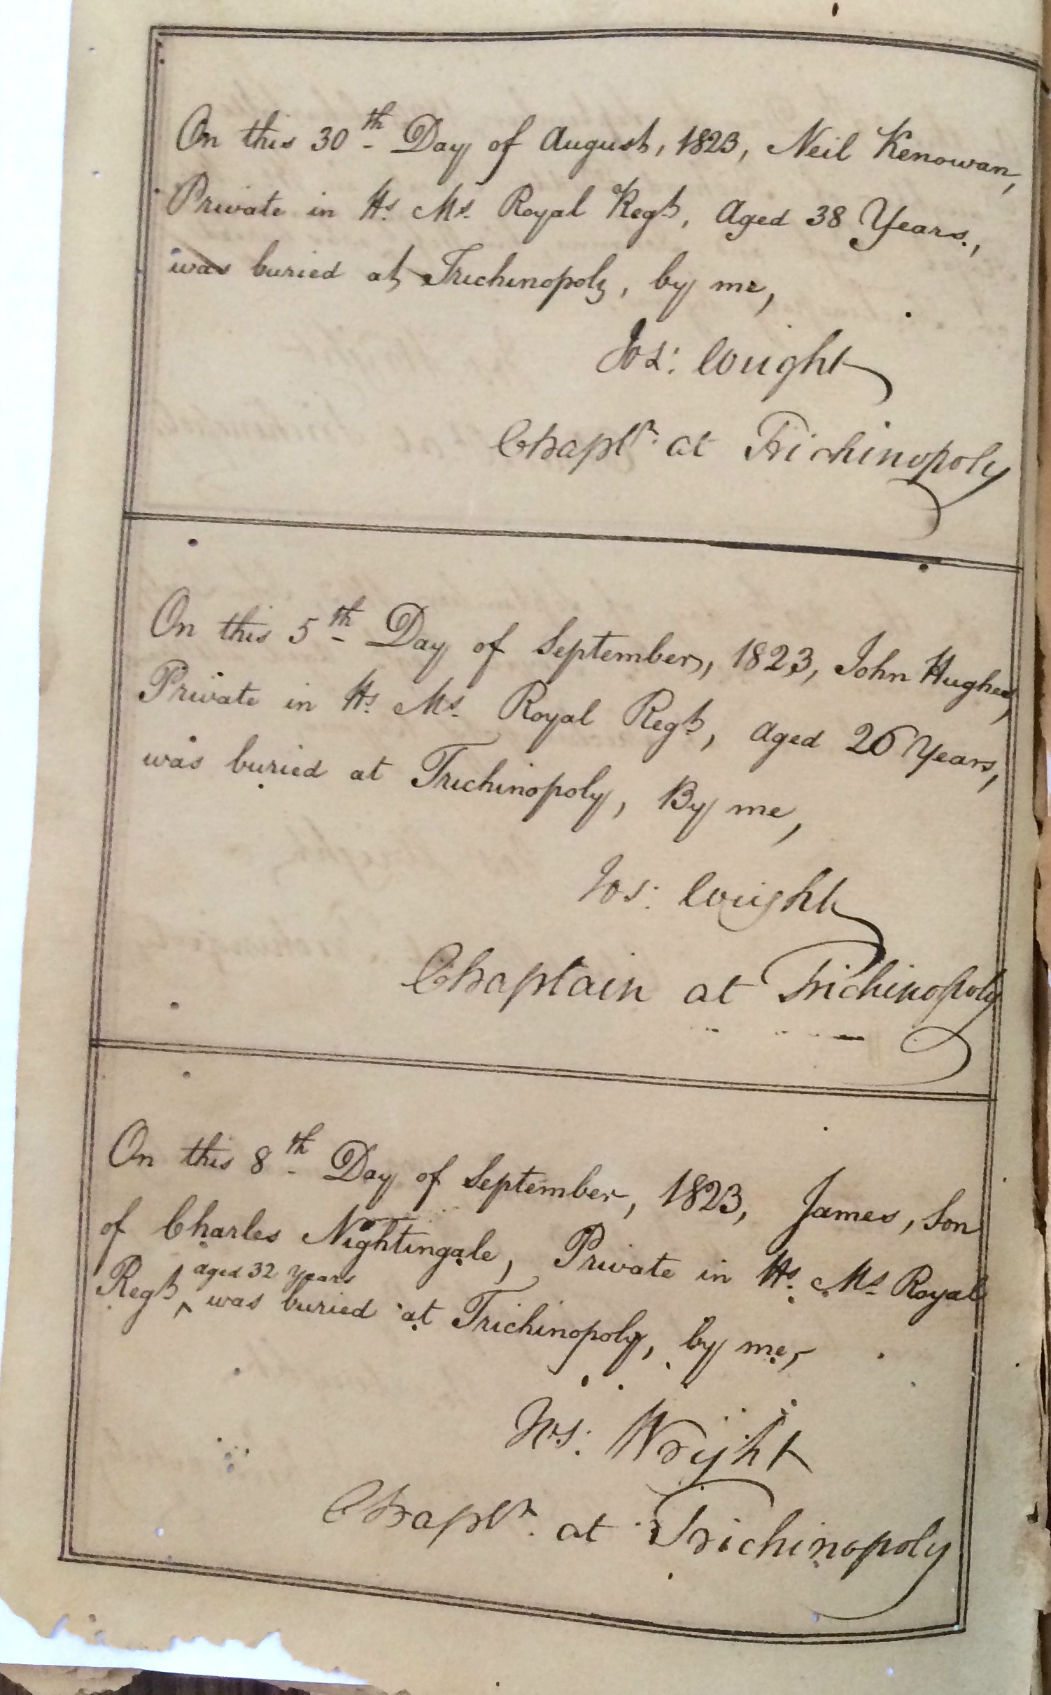 On this 30th Day of August, 1823, Neil Kenowan,
Private in Hs. Ms. Royal Regt, Aged 38 Years,
was buried at Trichinopoly, by me,
Jos: Wright
Chapln. at Trichinopoly
On this 5th Day of September, 1823, John Hughes,
Private in Hs. Ms. Royal Regt, aged 26 Years,
was buried at Trichinopoly, By me,
Jos: Wright
Chaplain at Trichinopoly
On this 8th Day of September, 1823, James, Son
of Charles Nightingale, Private in Hs. Ms. Royal
aged 32 years
Regt, ^ was buried at Trichinopoly, by me,
Jos: Wright
Chapln. at Trichinopoly